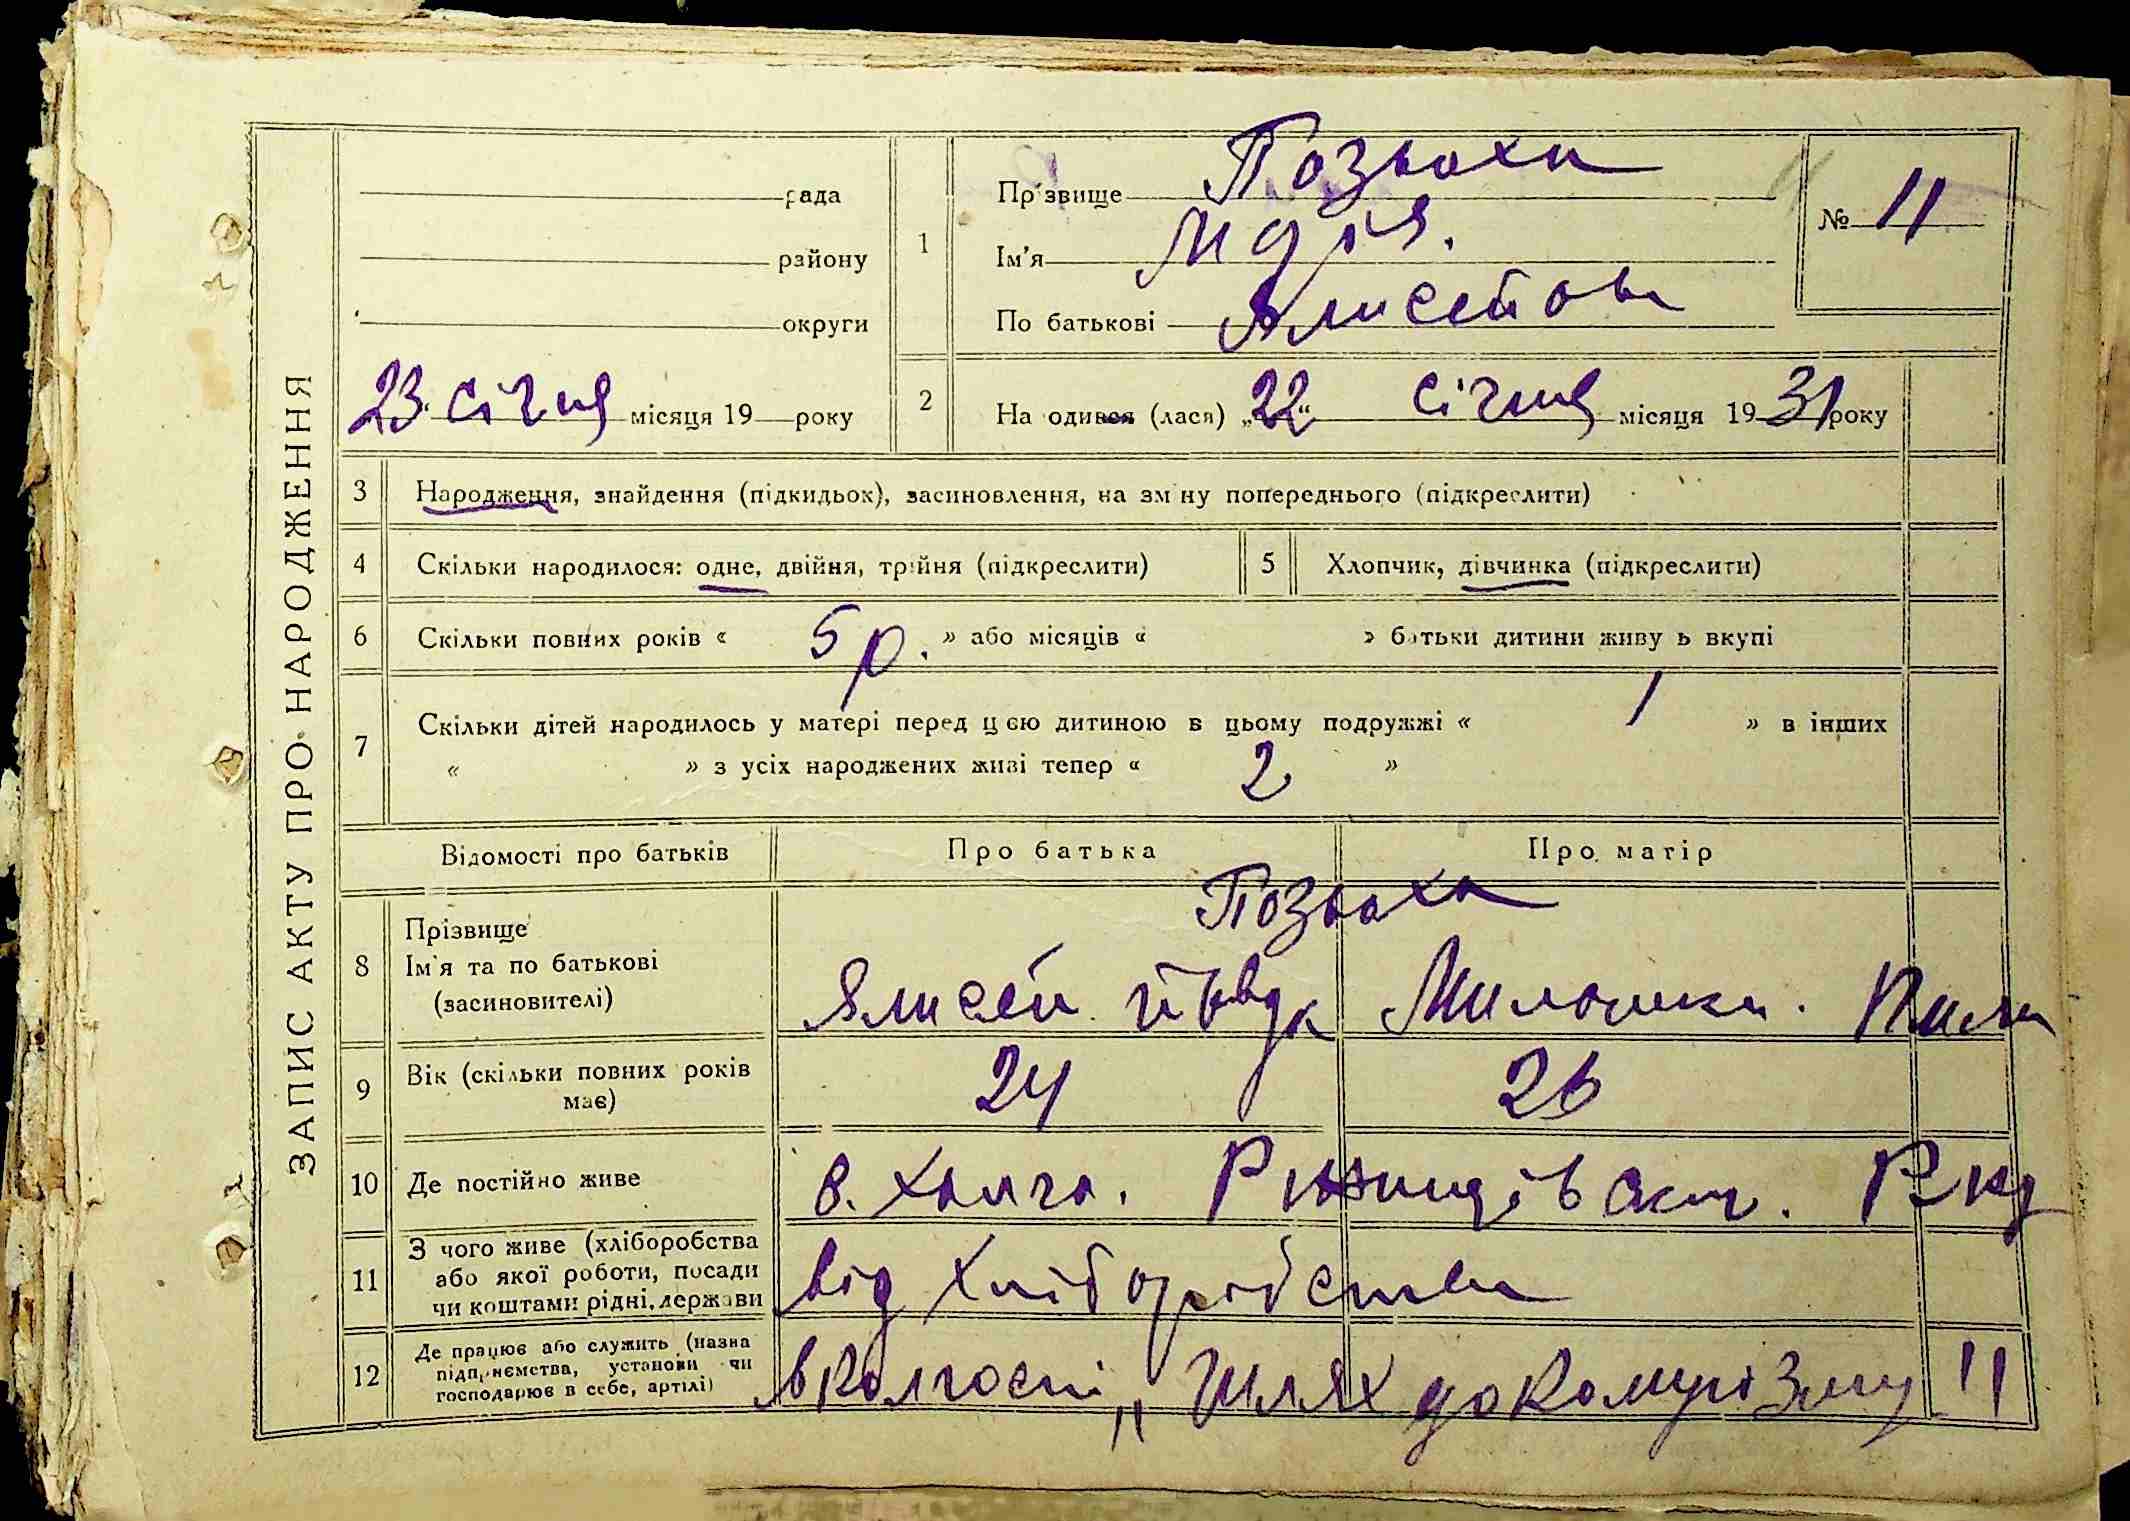 ЗАПИС АКТУ ПРО НАРОДЖЕННЯ
рада
району
округи
23 січня місяця 19 року
1
Прізвище Позьоха
Ім'я Марія.
По батькові Ялисейова
№ 11
2 Народився (лася) „22“ січня місяця 1931 року
3 Народження, знайдення (підкидьок), засиновлення, на зміну попереднього (підкреслити)
4 Скільки народилося: одне, двійня, трійня (підкреслити)
5 Хлопчик, дівчинка (підкреслити)
6 Скільки повних років « 5 р. » або місяців « » батьки дитини живуть вкупі
7 Скільки дітей народилось у матері перед цією дитиною в цьому подружжі « 1 » в інших
« » з усіх народжених живі тепер « 2 »
Відомості про батьків
Про батька
Про матір
8 Прізвище
Ім'я та по батькові
(засиновителі)
Позьоха
Ялисей
9 Вік (скільки повних років
має)
24
26
10 Де постійно живе
в.
11 З чого живе (хліборобства
або якої роботи, посади
чи коштами рідні, держави
від хліборобства
12 Де працює або служить (назва
підприємства, установи чи
господарює в себе, артілі)
в колгоспі „ Шлях до комунізму "